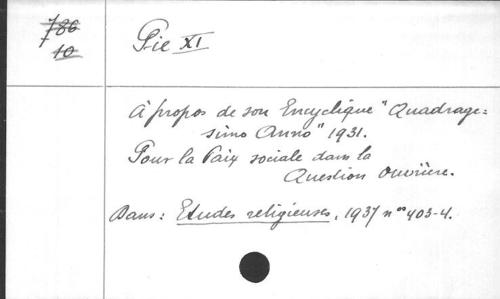 786
10
Pie XI
À propos de son Encyclique "Quadrage=
simo Anno" 1931.
Pour la Paix sociale dans la
Question ouvrière.
Dans : Etudes religieuses, 1937 nos 403-4.